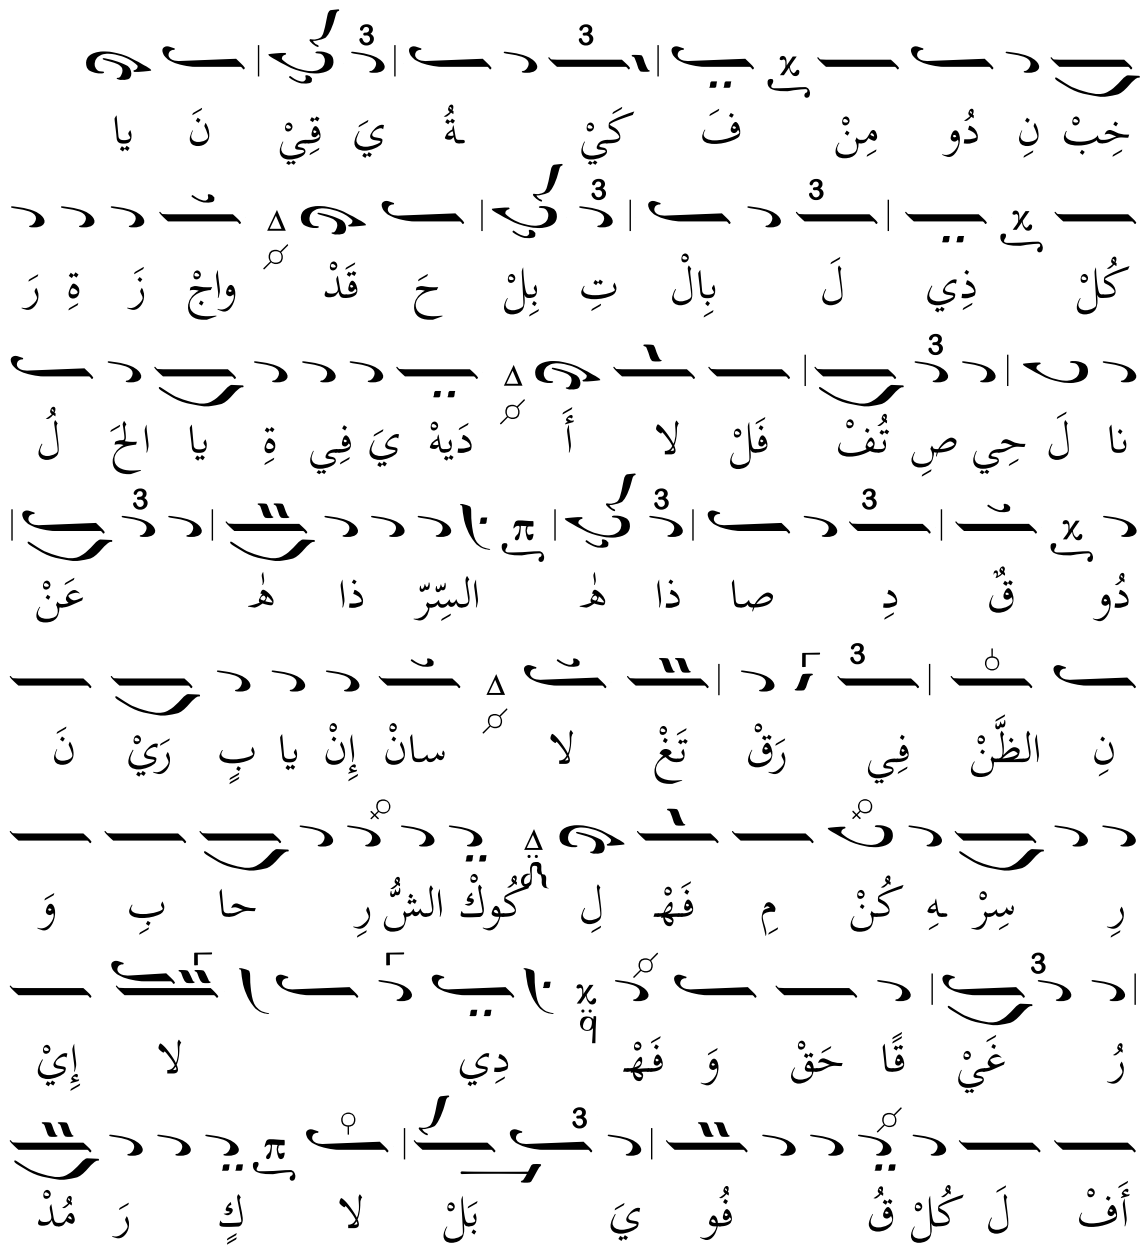 خِبْ نِ دُو مِنْ فَ كَيْ ـةُ يَ قِيْ نَ يا
كُلْ ذِي لَ بِالْ تِ بِلْ حَ قَدْ واجْ زَ ةِ رَ
نا لَ حِي صِ تُفْ فَلْ لا أَ دَيهْ يَ فِي ةِ يا الحَ لُ
دُو قٌ دِ صا ذا هٰ السِّرّ ذا هٰ عَنْ
نِ الظَّنْ فِي رَقْ تَغْ لا سانْ إِنْ يا بٍ رَيْ نَ
رِ سِرْ ـهِ كُنْ مِ فَهْـ لِ كُوكْ الشُّ رِ حا بِ وَ
رُ غَيْ قًا حَقْ وَ فَهْـ دِي لا إِيْ
أَفْ لَ كُلْ قُ فُو يَ بَلْ لا كٍ رَ مُدْ